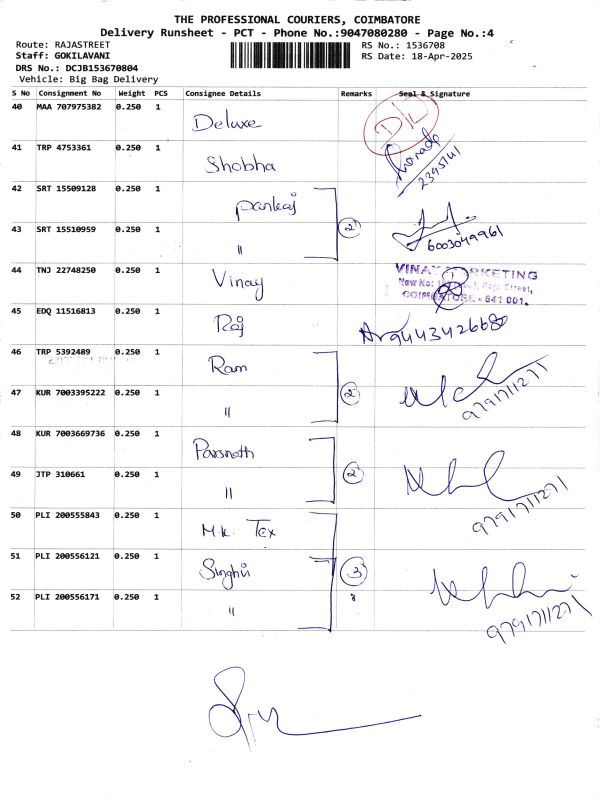 THE PROFESSIONAL COURIERS, COIMBATORE
Delivery Runsheet - PCT - Phone No.:9047080280 - Page No.:4
Route: RAJASTREET
Staff: GOKILAVANI
DRS No.: DCJB153670804
Vehicle: Big Bag Delivery
RS No.: 1536708
RS Date: 18-Apr-2025
S No Consignment No Weight PCS Consignee Details Remarks Seal & Signature
40 MAA 707975382 0.250 1 Deluxe D/L
41 TRP 4753361 0.250 1 Shobha
2395141
42 SRT 15509128 0.250 1 Pankaj
43 SRT 15510959 0.250 1 " 2 6003049961
44 TNJ 22748250 0.250 1 Vinay VINAY MARKETING
New No: Raja Street,
COIMBATORE - 641 001.
45 EDQ 11516813 0.250 1 Raj 9443426680
46 TRP 5392489 0.250 1 Ram
47 KUR 7003395222 0.250 1 " 2 9791711271
48 KUR 7003669736 0.250 1 Parsnath
49 JTP 310661 0.250 1 " 2 9791711271
50 PLI 200555843 0.250 1 M.K. Tex
51 PLI 200556121 0.250 1 Singhvi 3
52 PLI 200556171 0.250 1 " 9791711271